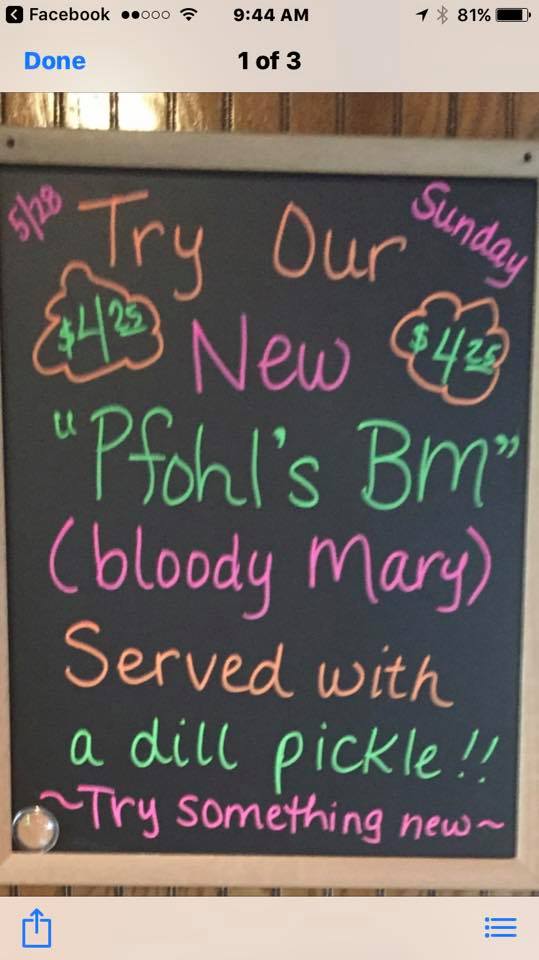 Facebook 9:44 AM 81%
Done 1 of 3
5/28 Sunday
Try Our
$4.25 New $4.25
"Pfohl's BM"
(bloody Mary)
Served with
a dill pickle!!
~Try something new~